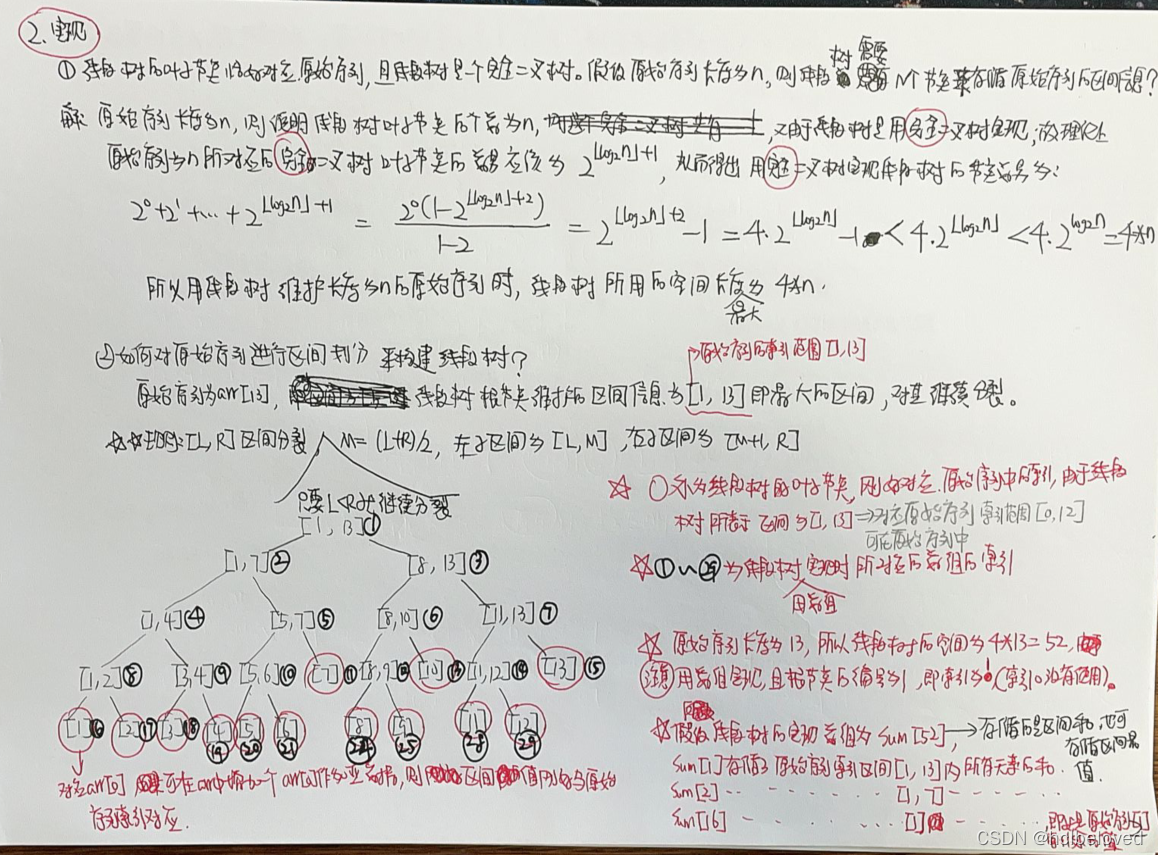 2.实现
① 线段树的叶子节点恰好对应原始序列,且线段树是一个完全二叉树。假设原始序列长度为n,则线段树需要几个节点来存储原始序列的区间信息?
解 原始序列长度为n,则说明线段树叶子节点的个数为n,又由于线段树是用完全二叉树实现,故理论上
原始序列为n所对应的完全二叉树叶子节点的总数应该为 2^{⌊log₂n⌋+1},从而得出用完全二叉树实现线段树的节点总数为:
2⁰+2¹+…+2^{⌊log₂n⌋+1} = 2⁰(1-2^{⌊log₂n⌋+2})/(1-2) = 2^{⌊log₂n⌋+2}-1 = 4·2^{⌊log₂n⌋}-1 < 4·2^{⌊log₂n⌋} < 4·2^{log₂n} = 4*n
所以用线段树维护长度为n的原始序列时,线段树所用的空间长度最大为 4*n.
②如何对原始序列进行区间划分来构建线段树?
→原始序列的索引范围[1,13]
原始序列为arr[13],线段树根节点维护的区间信息为[1,13]即最大的区间,对其继续分裂。
[L,R]区间分裂,M=(L+R)/2,左子区间为[L,M],右子区间为[M+1,R]
只要L<R就继续分裂
[1,13]①
[1,7]② [8,13]③
[1,4]④ [5,7]⑤ [8,10]⑥ [11,13]⑦
[1,2]⑧ [3,4]⑨ [5,6]⑩ [7]⑪ [8,9]⑫ [10]⑬ [11,12]⑭ [13]⑮
[1]⑯ [2]⑰ [3]⑱ [4]⑲ [5]⑳ [6]㉑ [8]㉔ [9]㉕ [11]㉘ [12]㉙
对应arr[0] 在arr中增加一个arr[0]作为 则区间值则均与原始
序列索引对应.
☆ ○ 为线段树的叶子节点,刚好对应原始序列中的索引,由于线段
树所表示区间为[1,13]⇒对应原始序列索引范围[0,12]
可在原始序列中
☆①~㉙为线段树实现时所对应的数组的索引
用数组
☆ 原始序列长度为13,所以线段树的空间为4*13=52,
注意 用数组实现,且根节点的编号为1,即索引为1(索引0没有使用)。
☆假设线段树的实现数组为sum[52],→存储的是区间和,也可
存储区间最
值.
sum[1]存储了原始序列索引区间[1,13]内所有元素的和.
sum[2] -- ------ [1,7] ------
sum[16] ------ [1] ------ 即
CSDN @hdubeloved